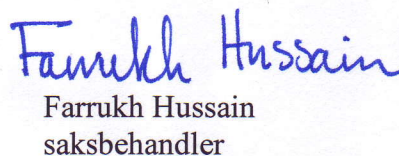 Farrukh Hussain
Farrukh Hussain
saksbehandler